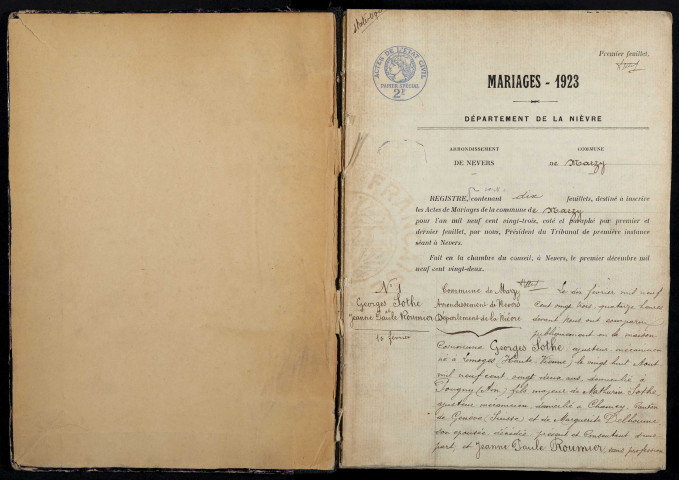 Premier feuillet.
ACTES DE L'ÉTAT CIVIL
PAPIER SPÉCIAL
2F
MARIAGES - 1923
DÉPARTEMENT DE LA NIÈVRE
ARRONDISSEMENT
DE NEVERS
COMMUNE
DE Marzy
REGISTRE, contenant dix feuillets, destiné à inscrire
les Actes de Mariages de la commune de Marzy
pour l'an mil neuf cent vingt-trois, coté et paraphé par premier et
dernier feuillet, par nous, Président du Tribunal de première instance
séant à Nevers.
Fait en la chambre du conseil, à Nevers, le premier décembre mil
neuf cent vingt-deux.
N° 1
Georges Sothe
et
Jeanne Paule Roumier
10 février
Commune de Marzy
Arrondissement de Nevers
Département de la Nièvre
Le dix février mil neuf
cent vingt trois, quatorze heures
devant nous ont comparu
publiquement en la maison
Commune Georges Sothe, ajusteur mécanicien
né à Limoges (Haute-Vienne) le vingt huit Août
mil neuf cent, vingt deux ans, domicilié à
Pougny (Ain) fils majeur de Mathurin Sothe,
ajusteur mécanicien, domicilié à Chancy, Canton
de Genève (Suisse) et de Marguerite Delhoume,
son épouse décédée, présent et Consentant d'une
part, et Jeanne Paule Roumier, sans profession